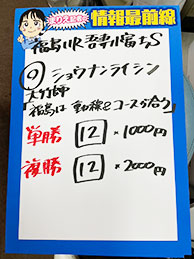 まりえ記者 情報最前線
福島11R 吾妻小富士S
◎ショウナンライシン
大竹師
「福島は動線とコースが合う」
単勝 12 × 1000円
複勝 12 × 2000円